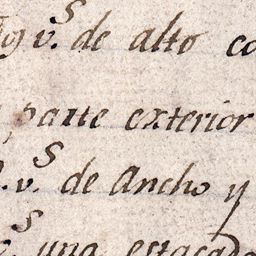 v.s de alto co
parte exterior
.v.s de Ancho y
s una estacad